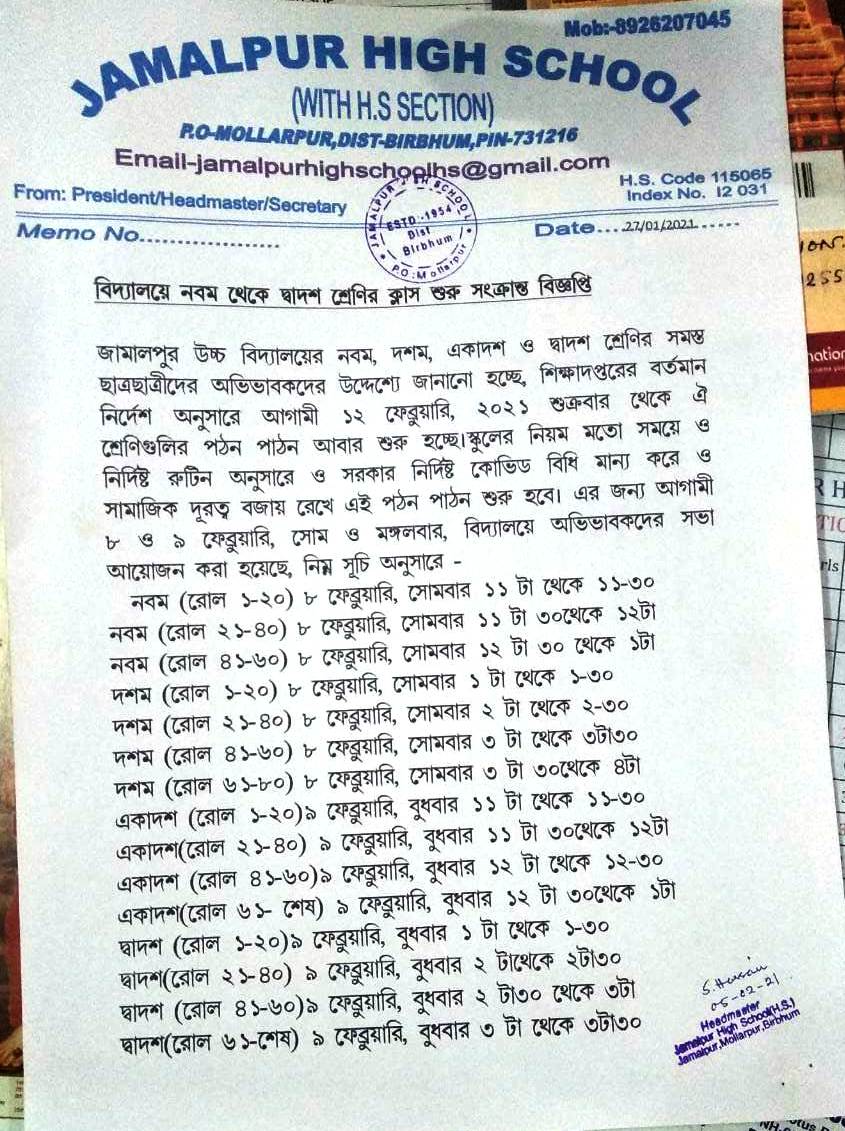 Mob:-8926207045
JAMALPUR HIGH SCHOOL
(WITH H.S SECTION)
P.O-MOLLARPUR,DIST-BIRBHUM,PIN-731216
Email-jamalpurhighschoolhs@gmail.com
H.S. Code 115065
From: President/Headmaster/Secretary
Index No. I2 031
JAMALPUR HIGH SCHOOL
ESTD:-1954
Dist
Birbhum
P.O: Mollarpur
Memo No.....................
Date....27/01/2021......
বিদ্যালয়ে নবম থেকে দ্বাদশ শ্রেণির ক্লাস শুরু সংক্রান্ত বিজ্ঞপ্তি
জামালপুর উচ্চ বিদ্যালয়ের নবম, দশম, একাদশ ও দ্বাদশ শ্রেণির সমস্ত
ছাত্রছাত্রীদের অভিভাবকদের উদ্দেশ্যে জানানো হচ্ছে, শিক্ষাদপ্তরের বর্তমান
নির্দেশ অনুসারে আগামী ১২ ফেব্রুয়ারি, ২০২১ শুক্রবার থেকে ঐ
শ্রেণিগুলির পঠন পাঠন আবার শুরু হচ্ছে।স্কুলের নিয়ম মতো সময়ে ও
নির্দিষ্ট রুটিন অনুসারে ও সরকার নির্দিষ্ট কোভিড বিধি মান্য করে ও
সামাজিক দূরত্ব বজায় রেখে এই পঠন পাঠন শুরু হবে। এর জন্য আগামী
৮ ও ৯ ফেব্রুয়ারি, সোম ও মঙ্গলবার, বিদ্যালয়ে অভিভাবকদের সভা
আয়োজন করা হয়েছে, নিম্ন সূচি অনুসারে -
নবম (রোল ১-২০) ৮ ফেব্রুয়ারি, সোমবার ১১ টা থেকে ১১-৩০
নবম (রোল ২১-৪০) ৮ ফেব্রুয়ারি, সোমবার ১১ টা ৩০থেকে ১২টা
নবম (রোল ৪১-৬০) ৮ ফেব্রুয়ারি, সোমবার ১২ টা ৩০ থেকে ১টা
দশম (রোল ১-২০) ৮ ফেব্রুয়ারি, সোমবার ১ টা থেকে ১-৩০
দশম (রোল ২১-৪০) ৮ ফেব্রুয়ারি, সোমবার ২ টা থেকে ২-৩০
দশম (রোল ৪১-৬০) ৮ ফেব্রুয়ারি, সোমবার ৩ টা থেকে ৩টা৩০
দশম (রোল ৬১-৮০) ৮ ফেব্রুয়ারি, সোমবার ৩ টা ৩০থেকে ৪টা
একাদশ (রোল ১-২০)৯ ফেব্রুয়ারি, বুধবার ১১ টা থেকে ১১-৩০
একাদশ(রোল ২১-৪০) ৯ ফেব্রুয়ারি, বুধবার ১১ টা ৩০থেকে ১২টা
একাদশ (রোল ৪১-৬০)৯ ফেব্রুয়ারি, বুধবার ১২ টা থেকে ১২-৩০
একাদশ(রোল ৬১- শেষ) ৯ ফেব্রুয়ারি, বুধবার ১২ টা ৩০থেকে ১টা
দ্বাদশ (রোল ১-২০)৯ ফেব্রুয়ারি, বুধবার ১ টা থেকে ১-৩০
দ্বাদশ(রোল ২১-৪০) ৯ ফেব্রুয়ারি, বুধবার ২ টাথেকে ২টা৩০
দ্বাদশ (রোল ৪১-৬০)৯ ফেব্রুয়ারি, বুধবার ২ টা৩০ থেকে ৩টা
দ্বাদশ(রোল ৬১-শেষ) ৯ ফেব্রুয়ারি, বুধবার ৩ টা থেকে ৩টা৩০
S. Hussain
05-02-21
Headmaster
Jamalpur High School(H.S.)
Jamalpur,Mollarpur,Birbhum